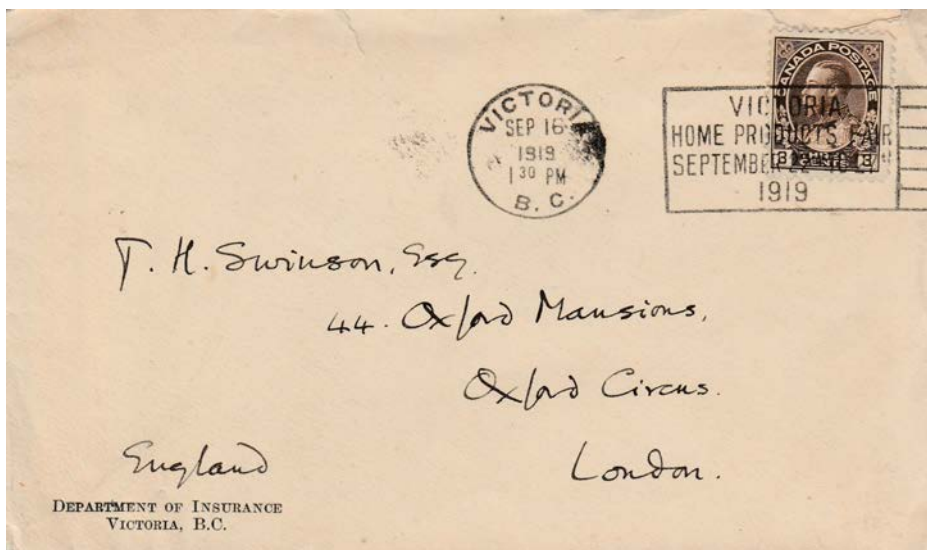 CANADA POSTAGE
VICTORIA
SEP 16
1919
1 30 PM
B. C.
VICTORIA
HOME PRODUCTS FAIR
SEPTEMBER 22ND TO 27TH
1919
3 CENTS 3
T. H. Swinson, Esq.
44. Oxford Mansions,
Oxford Circus.
London.
England
DEPARTMENT OF INSURANCE
VICTORIA, B.C.